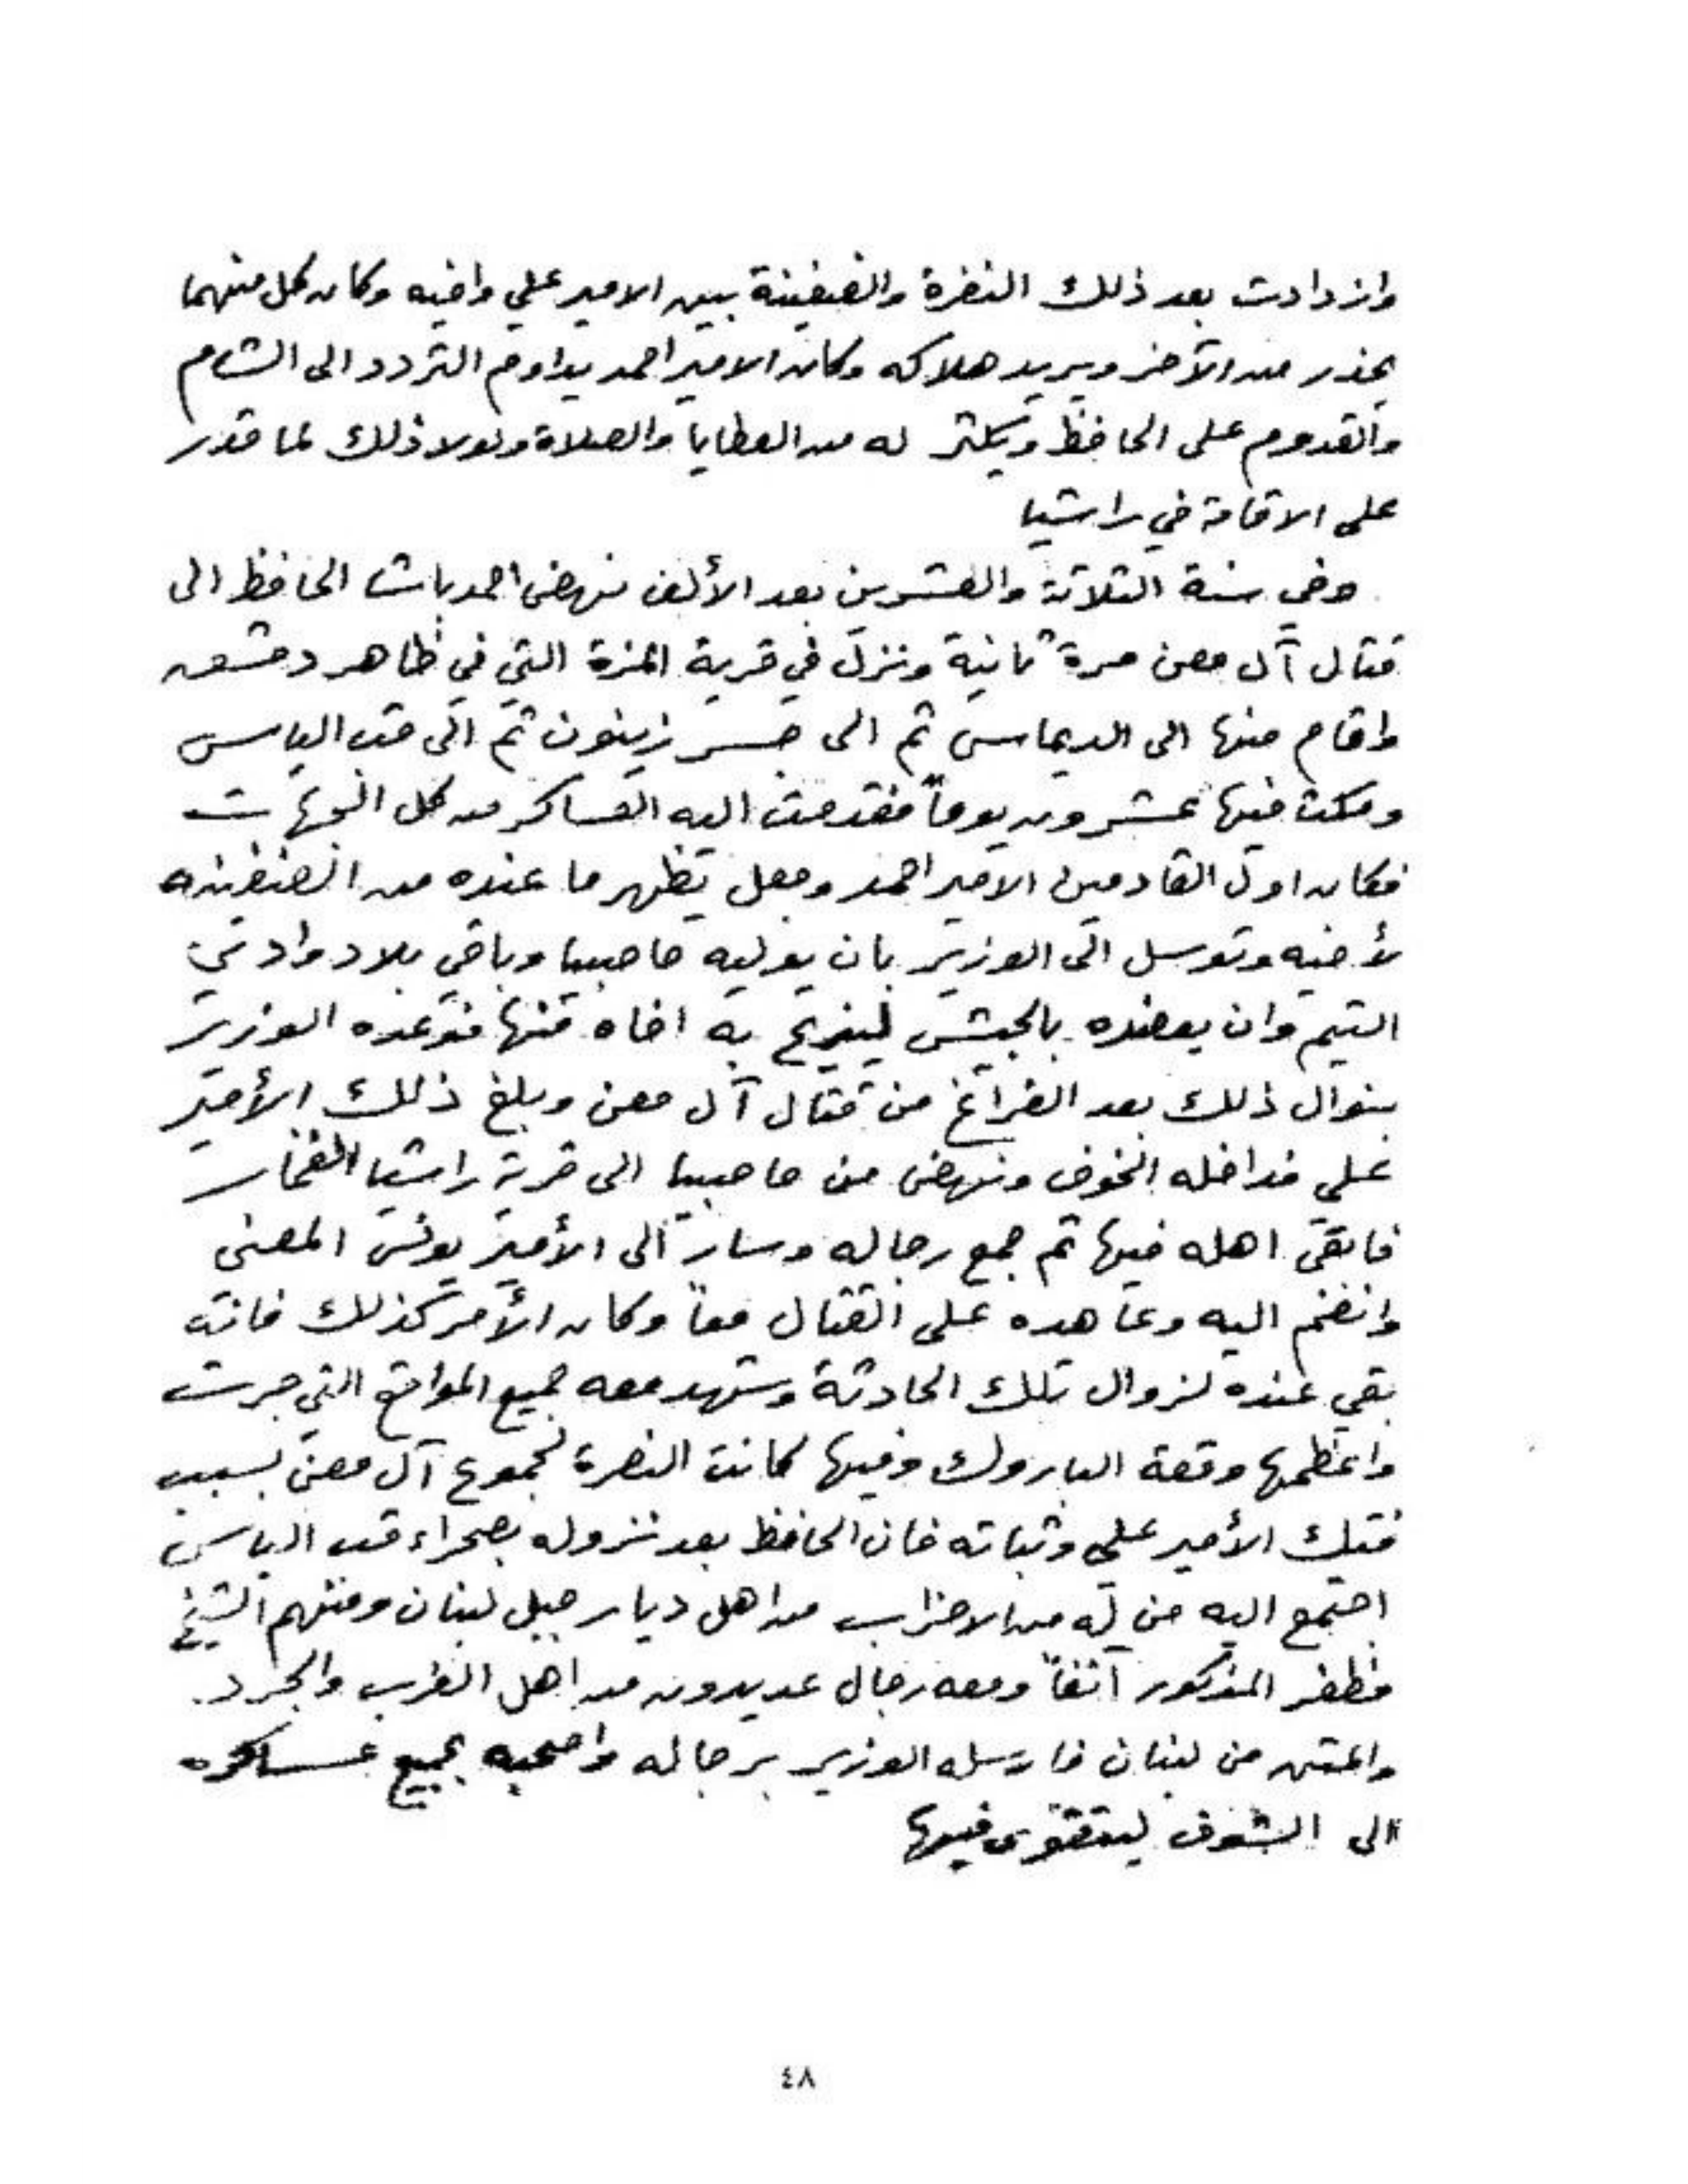 وازدادت بعد ذلك النفرة والضغينة بين الامير علي واخيه وكان كل منهما
يحذر من الآخر ويريد هلاكه وكان الامير احمد يداوم التردد الى الشام
والقدوم على الحافظ ويكثر له من العطايا والصلاة ولولا ذلك لما قدر
على الاقامة في راشيا
وفي سنة الثلاثة والعشرين بعد الألف نهض احمد باشا الحافظ الى
قتال آل معن مرة ثانية ونزل في قرية المزة التي في ظاهر دمشق
واقام منها الى الديماس ثم الى جسر زينون ثم الى قب الياس
ومكث فيها عشرون يوماً فقدمت اليه العساكر من كل الجهات
فكان اول القادمين الامير احمد وجعل يظهر ما عنده من الضغينه
لأخيه وتوسل الى الوزير بان يوليه حاصبيا وباقي بلاد وادي
التيم وان يعضده بالجيش ليزيح به اخاه منها فوعده الوزير
بنوال ذلك بعد الفراغ من قتال آل معن وبلغ ذلك الأمير
علي فداخله الخوف ونهض من حاصبيا الى قرية راشيا الفخار
فابقى اهله فيها ثم جمع رجاله وسار الى الأمير يونس المعني
وانضم اليه وعاهده على القتال معاً وكان الأمر كذلك فانه
بقي عنده لزوال تلك الحادثة وشهد معه جميع المواقع التي جرت
واعظمها وقعة الباروك وفيها كانت النصرة لجموع آل معن بسبب
فتك الأمير علي وثباته فان الحافظ بعد نزوله بصحراء قب الياس
اجتمع اليه من له من الاحزاب من اهل ديار جبل لبنان ومنهم الشيخ
مظفر المذكور آنفاً ومعه رجال عديدون من اهل الغرب والجرد
والمتن من لبنان فارسله الوزير برجاله واصحبه بجميع عساكره
الى الشوف ليتقوى فيها
٤٨